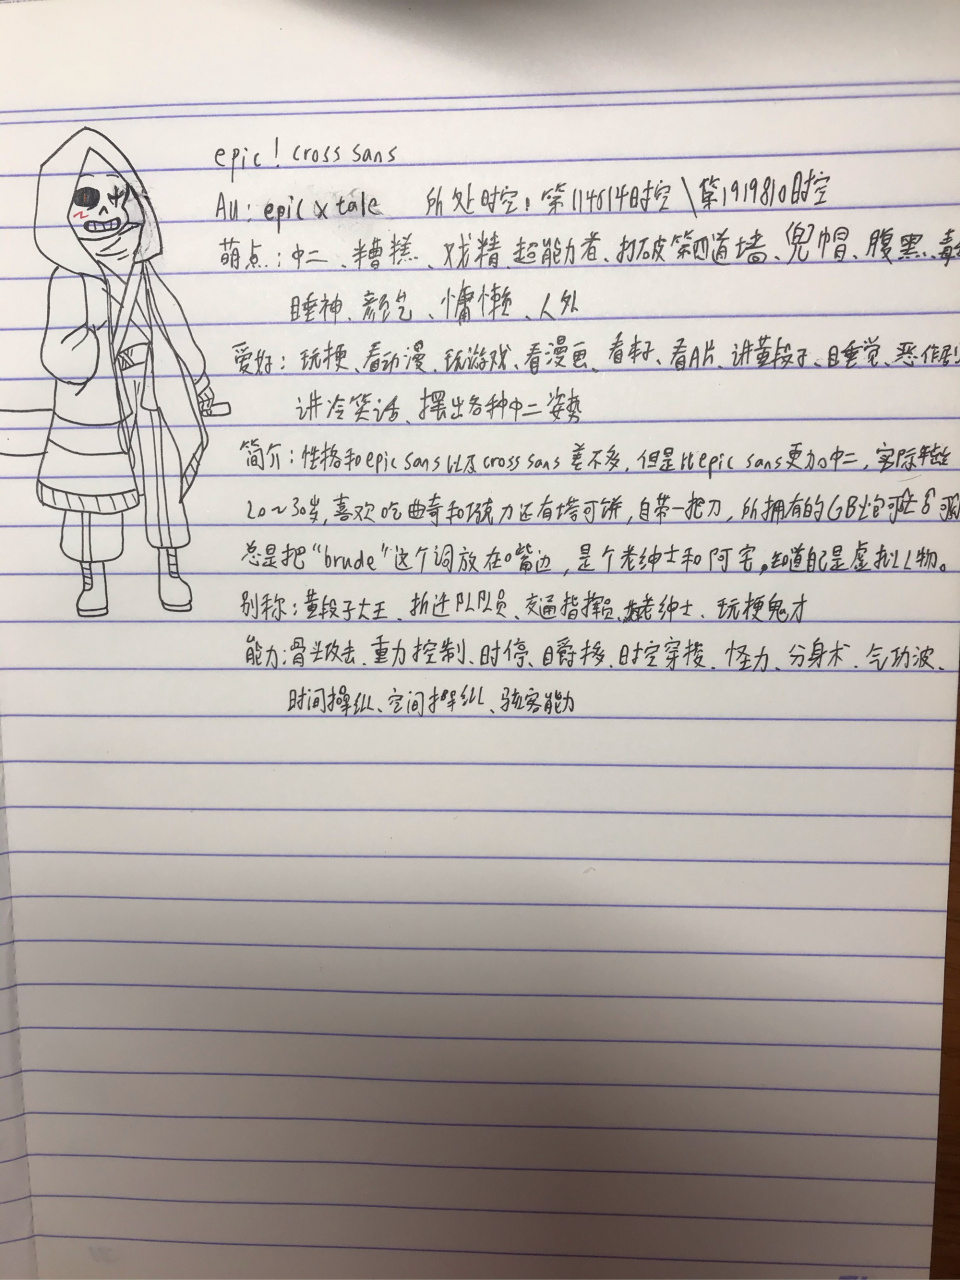 epic! cross sans
Au: epic x tale 所处时空: 第114514时空\第1919810时空
萌点: 中二、糟糕、戏精、超能力者、打破第四道墙、兜帽、腹黑、毒
睡神、颜艺、慵懒、人外
爱好: 玩梗、看动漫、玩游戏、看漫画、看本子、看A片、讲黄段子、睡觉、恶作剧
讲冷笑话、摆出各种中二姿势
简介: 性格和epic sans以及cross sans差不多, 但是比epic sans更加中二, 实际年龄
20~30岁, 喜欢吃曲奇和巧克力还有塔可饼, 自带一把刀, 所拥有的GB炮可
总是把"brude"这个词放在嘴边, 是个老绅士和阿宅。知道自己是虚拟人物。
别称: 黄段子大王、拆迁队队员、交通指挥员、老绅士、玩梗鬼才
能力: 骨头攻击、重力控制、时停、瞬移、时空穿梭、怪力、分身术、气功波、
时间操纵、空间操纵、骇客能力